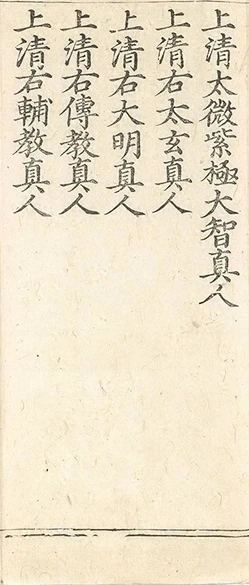 上清太微紫極大智真人
上清右太玄真人
上清右大明真人
上清右傳教真人
上清右輔教真人